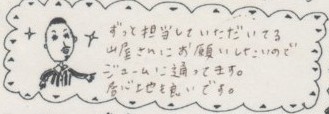 ずっと担当していただいてる
山屋さんにお願いしたいので
ジュームに通ってます。
居心地も良いです。